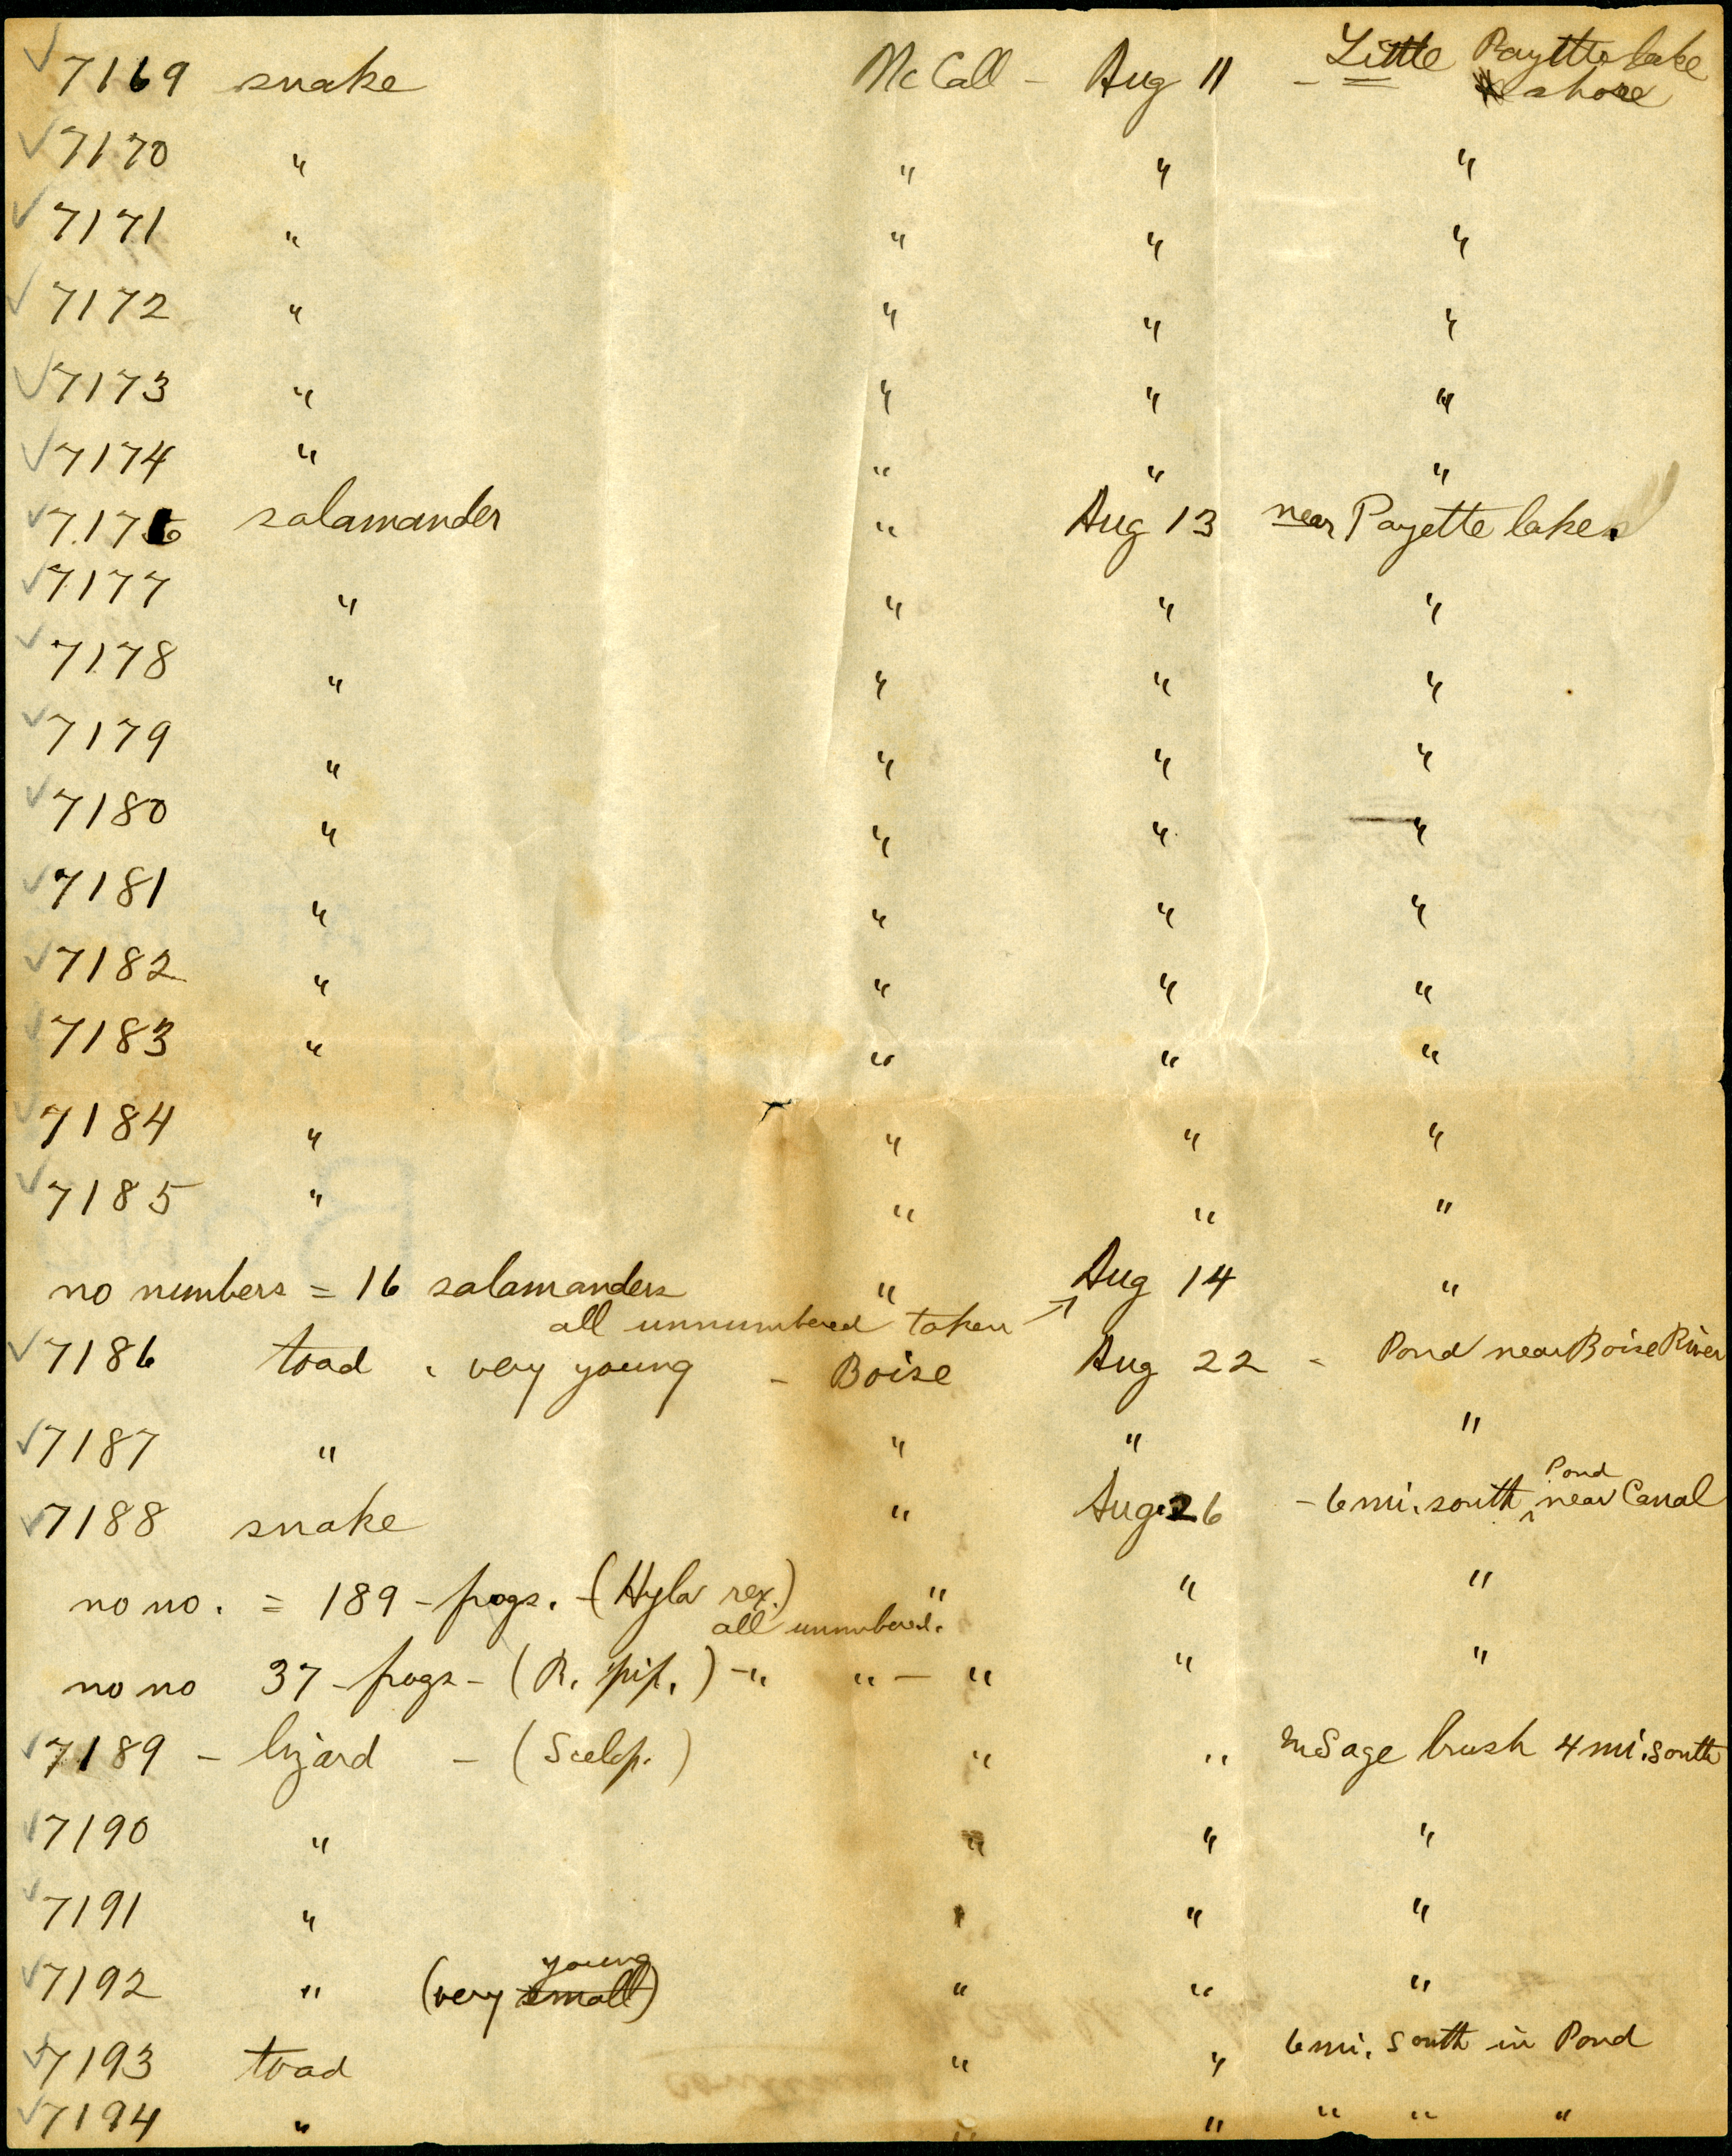 ✓ 7169 snake McCall - Aug 11 - Little Payette lake
shore
✓ 7170 " " " "
✓ 7171 " " " "
✓ 7172 " " " "
✓ 7173 " " " "
✓ 7174 " " " "
✓ 7176 salamander " Aug 13 near Payette lake.
✓ 7177 " " " "
✓ 7178 " " " "
✓ 7179 " " " "
✓ 7180 " " " "
✓ 7181 " " " "
✓ 7182 " " " "
✓ 7183 " " " "
✓ 7184 " " " "
✓ 7185 " " " "
no numbers = 16 salamanders " Aug 14 "
all unnumbered taken ↗
✓ 7186 toad , very young - Boise Aug 22 - Pond near Boise River
✓ 7187 " " " "
✓ 7188 snake " Aug. 26 - 6 mi. south Pond near Canal
no no. = 189 - frogs. - (Hyla rex.) " " "
all unnumbered.
no no 37 - frogs - (R. pip.) - " " - " " "
✓ 7189 - lizard - (Scelop.) " " in Sage brush 4 mi. south
✓ 7190 " " " "
✓ 7191 " " " "
young
✓ 7192 " (very small) " " "
✓ 7193 toad " " 6 mi. South in Pond
✓ 7194 " " " " " "